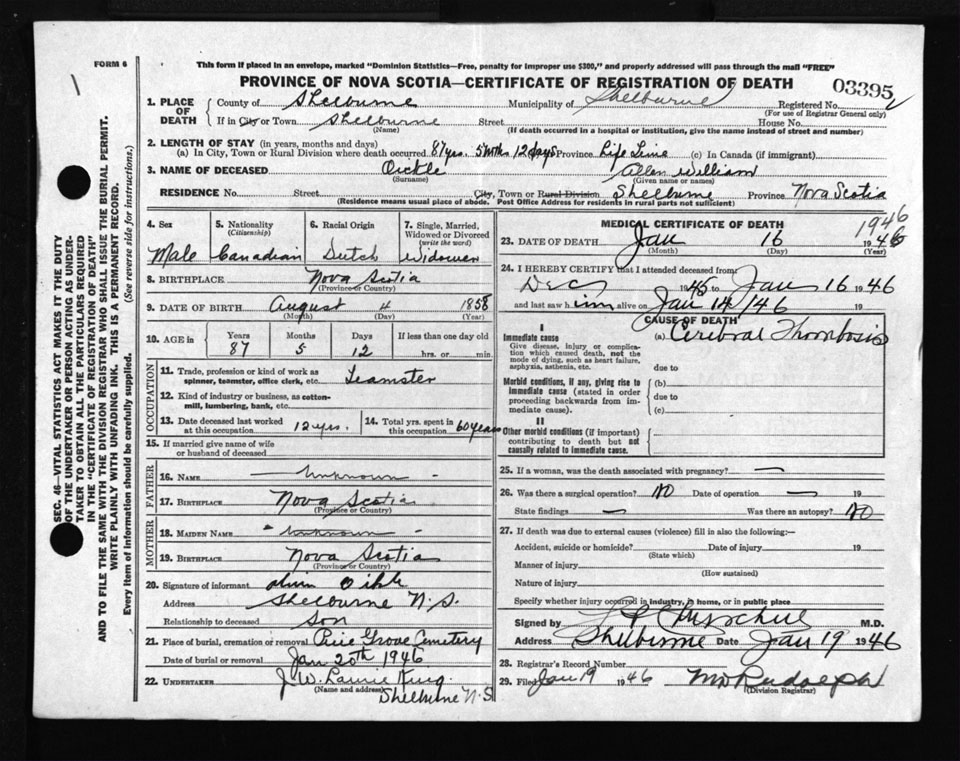 FORM 6
This form if placed in an envelope, marked "Dominion Statistics—Free, penalty for improper use $300," and properly addressed will pass through the mail "FREE"
PROVINCE OF NOVA SCOTIA—CERTIFICATE OF REGISTRATION OF DEATH
03395
1. PLACE OF DEATH
County of Shelburne Municipality of Shelburne Registered No.
(For use of Registrar General only)
If in City or Town Shelburne Street House No.
(Name) (If death occurred in a hospital or institution, give the name instead of street and number)
2. LENGTH OF STAY (in years, months and days)
(a) In City, Town or Rural Division where death occurred 87 yrs. 5 mths 12 days Province Life Time (c) In Canada (if immigrant)
3. NAME OF DECEASED Oickle Allen William
(Surname) (Given name or names)
RESIDENCE No. Street City, Town or Rural Division Shelburne Province Nova Scotia
(Residence means usual place of abode. Post Office Address for residents in rural parts not sufficient)
4. Sex Male
5. Nationality (Citizenship) Canadian
6. Racial Origin Dutch
7. Single, Married, Widowed or Divorced (write the word) Widower
8. BIRTHPLACE Nova Scotia
(Province or Country)
9. DATE OF BIRTH August 4 1858
(Month) (Day) (Year)
10. AGE in Years 87 Months 5 Days 12 If less than one day old hrs. or min.
OCCUPATION
11. Trade, profession or kind of work as spinner, teamster, office clerk, etc. Teamster
12. Kind of industry or business, as cotton-mill, lumbering, bank, etc.
13. Date deceased last worked at this occupation 12 yrs.
14. Total yrs. spent in this occupation 60 years
15. If married give name of wife or husband of deceased
FATHER
16. NAME Unknown
17. BIRTHPLACE Nova Scotia
(Province or Country)
MOTHER
18. MAIDEN NAME Unknown
19. BIRTHPLACE Nova Scotia
(Province or Country)
20. Signature of informant
Address Shelbourne N.S.
Relationship to deceased Son
21. Place of burial, cremation or removal Pine Grove Cemetery
Date of burial or removal Jan 20th 1946
22. UNDERTAKER J. W. Laurie King
(Name and address) Shelburne N.S
MEDICAL CERTIFICATE OF DEATH
1946
23. DATE OF DEATH Jan 16 1946
(Month) (Day) (Year)
24. I HEREBY CERTIFY that I attended deceased from:
Dec 1945 to Jan 16 1946
and last saw him alive on Jan 14/46 19
CAUSE OF DEATH
I
Immediate cause
Give disease, injury or complication which caused death, not the mode of dying, such as heart failure, asphyxia, asthenia, etc.
(a) Cerebral Thombosis
due to
Morbid conditions, if any, giving rise to immediate cause (stated in order proceeding backwards from immediate cause).
(b)
due to
(c)
II
Other morbid conditions (if important) contributing to death but not causally related to immediate cause.
25. If a woman, was the death associated with pregnancy? —
26. Was there a surgical operation? NO Date of operation — 19
State findings — Was there an autopsy? NO
27. If death was due to external causes (violence) fill in also the following:—
Accident, suicide or homicide? Date of injury 19
(State which)
Manner of injury
(How sustained)
Nature of injury
Specify whether injury occurred in industry, in home, or in public place
Signed by M.D.
Address Shelburne Date Jan 19 1946
28. Registrar's Record Number
29. Filed Jan 19 1946
(Division Registrar)
SEC. 46—VITAL STATISTICS ACT MAKES IT THE DUTY
OF THE UNDERTAKER OR PERSON ACTING AS UNDER-
TAKER TO OBTAIN ALL THE PARTICULARS REQUIRED
IN THE "CERTIFICATE OF REGISTRATION OF DEATH"
AND TO FILE THE SAME WITH THE DIVISION REGISTRAR WHO SHALL ISSUE THE BURIAL PERMIT.
WRITE PLAINLY WITH UNFADING INK. THIS IS A PERMANENT RECORD.
Every item of information should be carefully supplied. (See reverse side for instructions.)